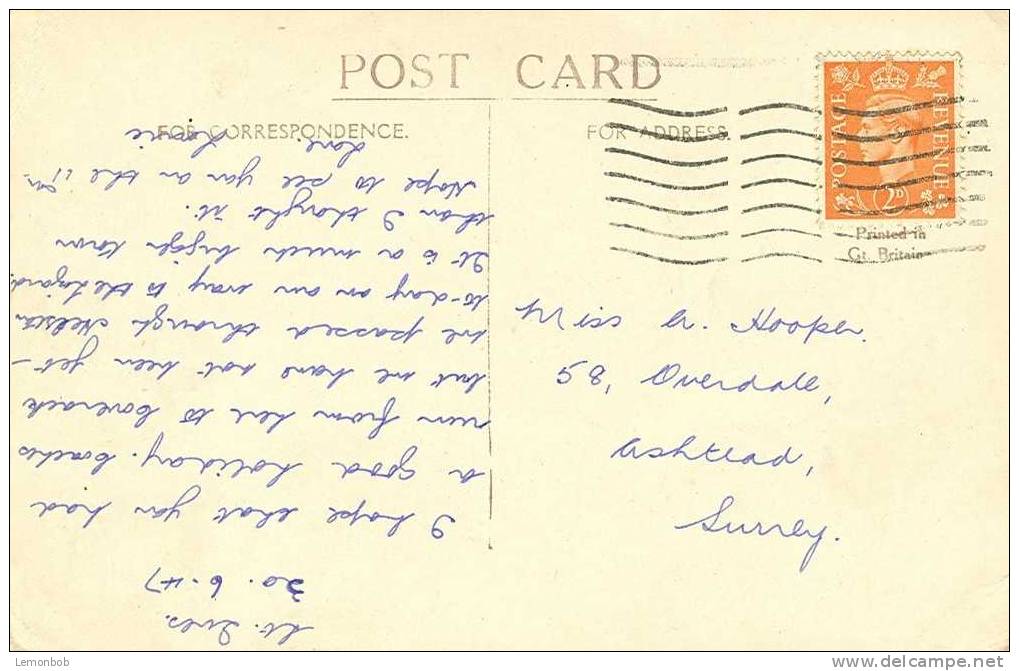 POST CARD
FOR CORRESPONDENCE.
FOR ADDRESS.
POSTAGE REVENUE
2D
Printed in
Gt. Britain
St. Ives.
20.6.47
I hope that you had
a good holiday. Coaches
run from here to Coverack
but we have not been yet –
We passed through Helston
to-day on our way to the Lizard.
It is a much bigger town
than I thought it.
Hope to see you on the
Love
Miss A. Hooper.
58, Overdale,
Ashtead,
Surrey.
Lemonbob
www.delcampe.net